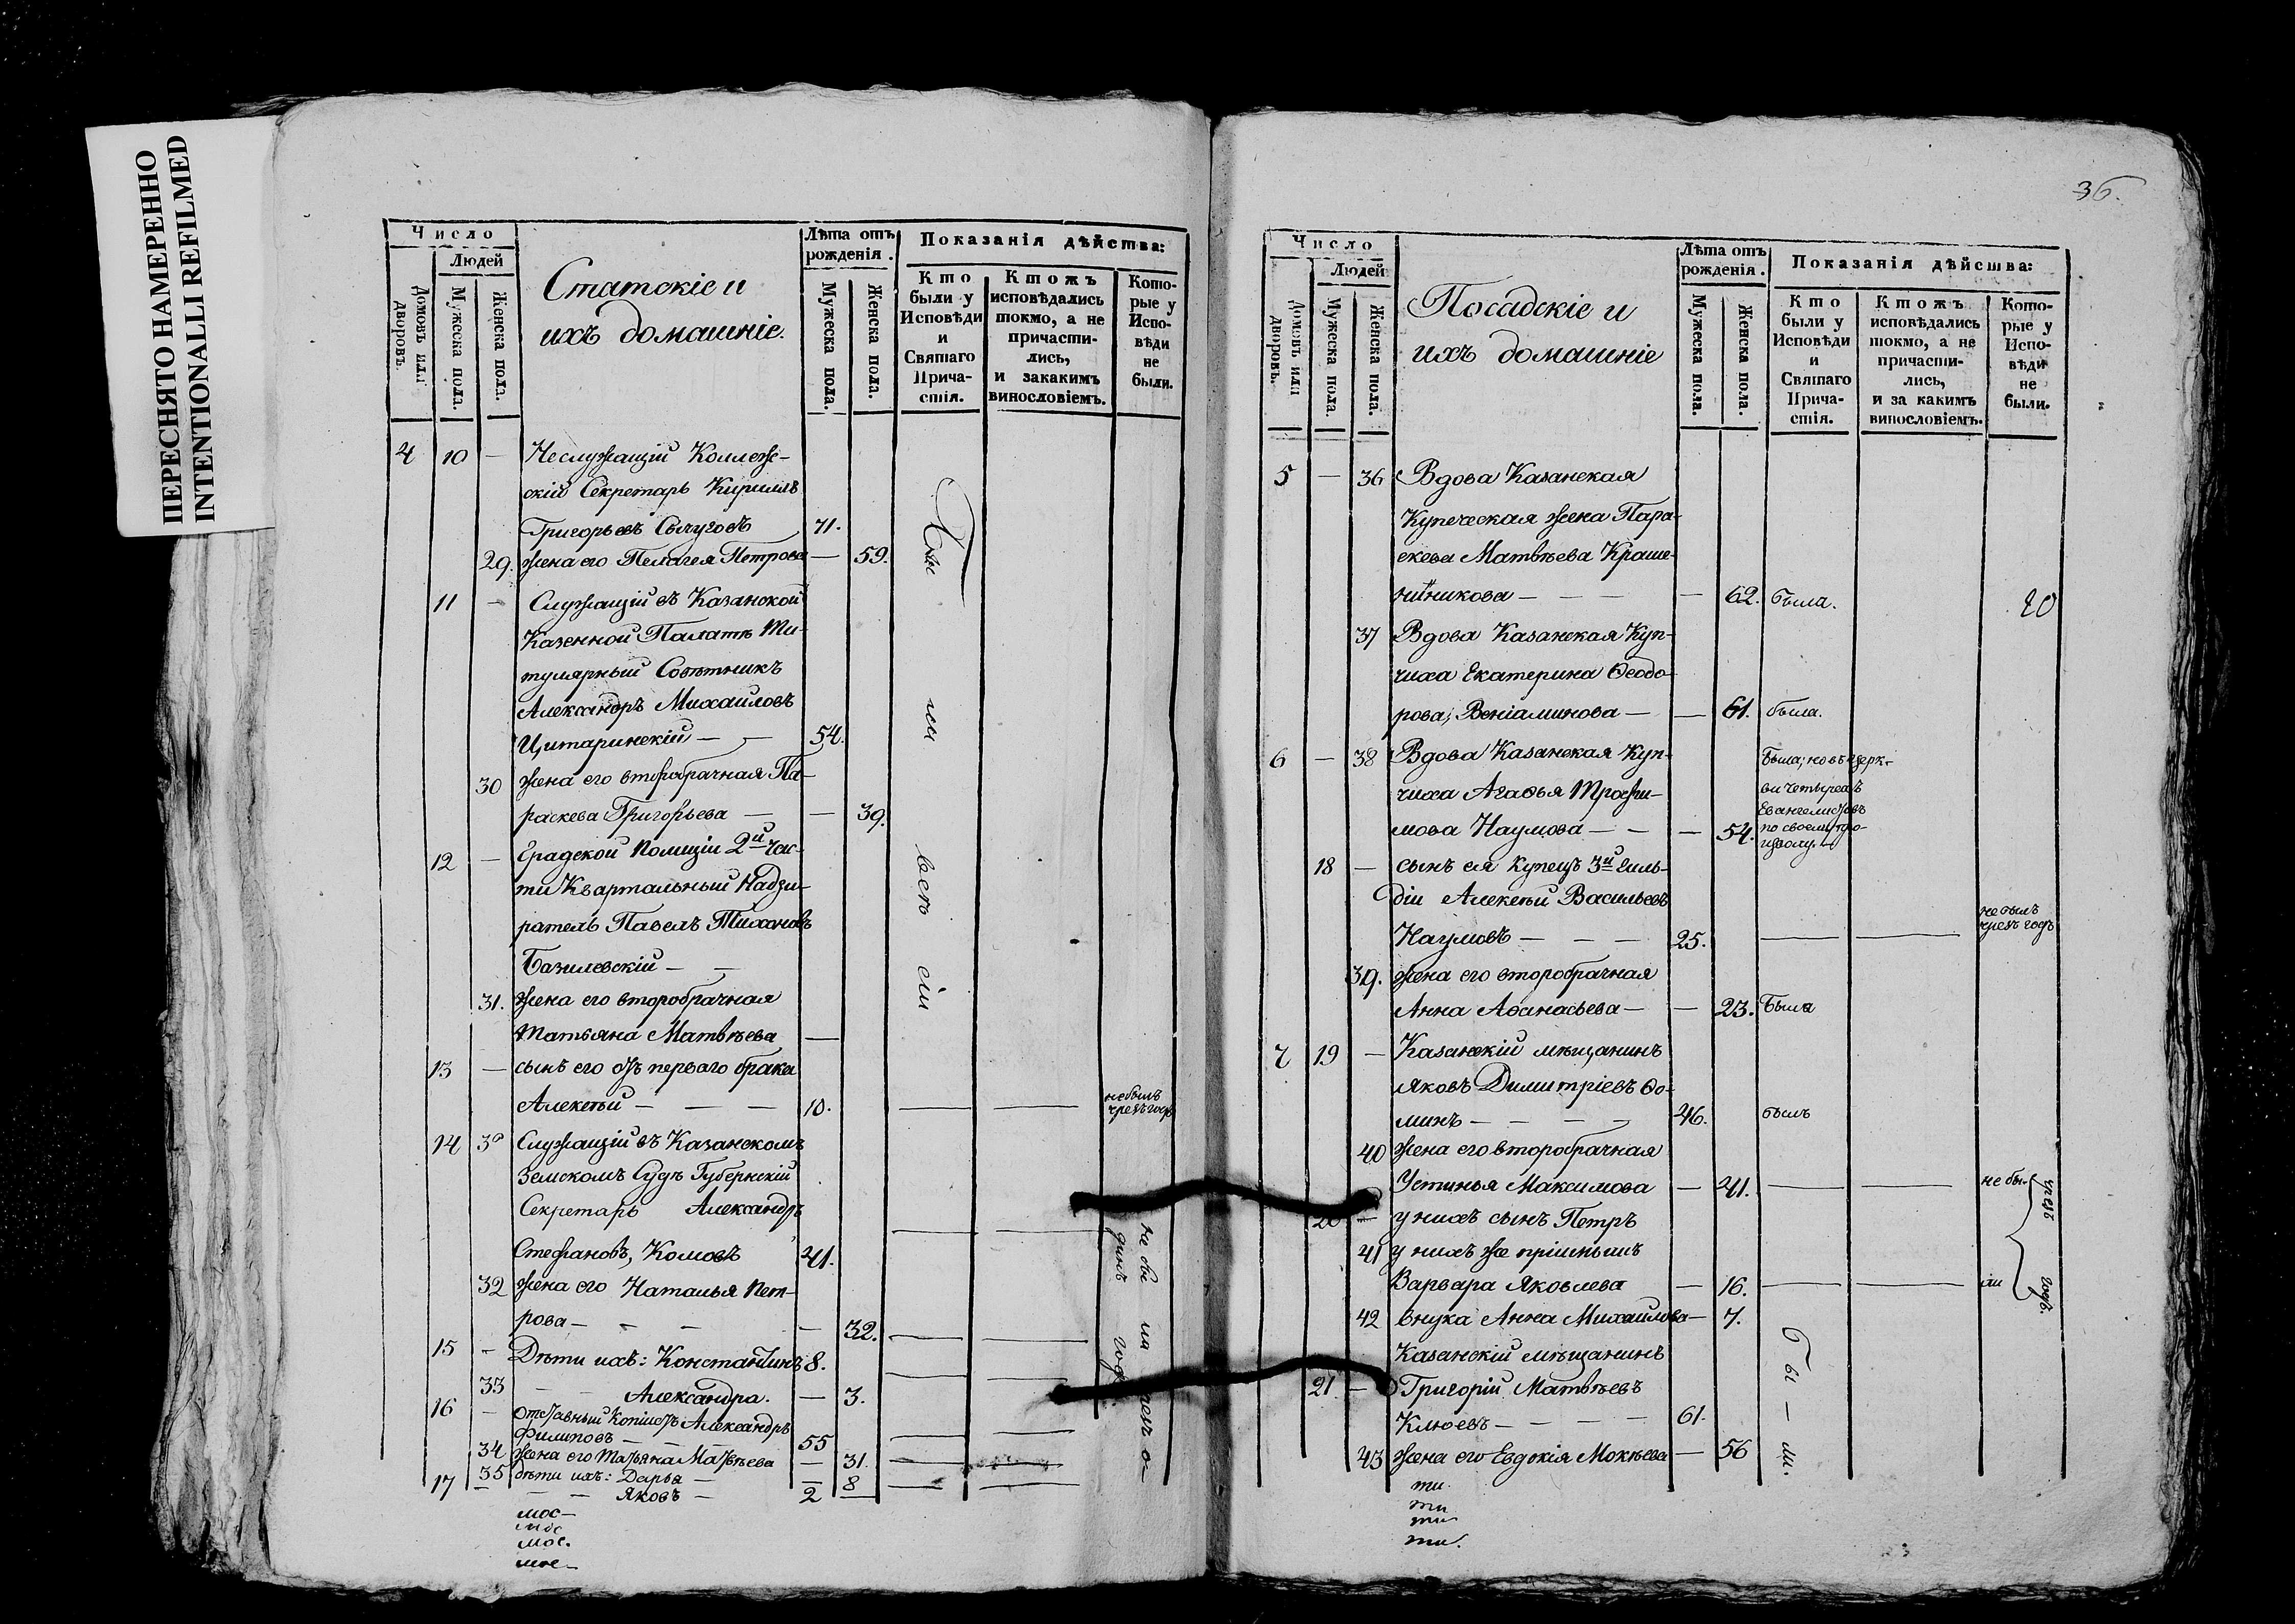 ПЕРЕСНЯТО НАМЕРЕННО
INTENTIONALLI REFILMED
Число
Людей
Домовъ или дворовъ.
Мужеска пола.
Женска пола.
Статскіе и
ихъ домашніе.
Лѣта отъ рожденія.
Мужеска пола.
Женска пола.
Показанія дѣйства:
Кто были у Исповѣди и Святаго Причастія.
Ктожъ исповѣдались токмо, а не причастились, и закакимъ винословіемъ.
Которые у Исповѣди не были.
4 10 — Неслужащій Коллеж-
скій Секретарь Кириллъ
Григорьевъ Сычуговъ 71.
29. жена его Пелагея Петрова — 59.
11 — Служащій въ Казанской
Казенной Палатѣ Ти-
тулярный Совѣтникъ
Александръ Михайловъ
Цитаринскій — — 54.
30 жена его второбрачная Па-
раскева Григорьева — — 39.
12 — Градской Полиціи 2й Час-
ти Квартальный Надзи-
ратель Павелъ Тихоновъ
Базилевскій — —
31. жена его второбрачная
Татьяна Матвѣева —
13 — сынъ его отъ перваго брака
Алексѣй — — — 10. не былъ
чрезъ годъ
14 Служащій въ Казанскомъ
Земскомъ Судѣ Губернскій
Секретарь Александръ
Стефановъ, Комовъ 41.
32 жена его Наталья Пет-
рова — — — — 32.
15 — Дѣти ихъ: Константинъ 8.
33 — — Александра. — 3.
16 — отставный Копіистъ Александръ
Филиповъ — — — 55
34 жена его Татьяна Матвѣева — 31.
35 дѣти ихъ: Дарья — — 8
17 — — — Яковъ — 2 —
всѣ сіи
мос-
мос
мос.
мос-
36.
Число
Людей
Домовъ или дворовъ.
Мужеска пола.
Женска пола.
Посадскіе и
ихъ домашніе
Лѣта отъ рожденія.
Мужеска пола.
Женска пола.
Показанія дѣйства:
Кто были у Исповѣди и Святаго Причастія.
Ктожъ исповѣдались токмо, а не причастились, и за какимъ винословіемъ.
Которые у Исповѣди не были.
5 — 36 Вдова Казанская
Купеческая жена Пара-
скева Матвѣева Краше-
нинникова — — — — 62. была.
37 Вдова Казанская Куп-
чиха Екатерина Ѳеодо-
рова, Веніаминова — — 61. была.
6 — 38 Вдова Казанская Куп-
чиха Агаѳья Трофи-
мова Наумова — — — 54. Была; но въ церк-
ви четырехъ
Евангелистовъ
по своему про-
изволу.
18 — сынъ ея купецъ 3й Гиль-
діи Алексѣй Васильевъ
Наумовъ — — — 25. не былъ
чрезъ годъ
39. жена его второбрачная
Анна Аѳанасьева — — 23. Была
7 19 — Казанскій мѣщанинъ
Яковъ Димитріевъ Ѳо-
минъ — — — — 46. былъ
40 жена его второбрачная
Устинья Максимова — 41. не бы-
20 — у нихъ сынъ Петръ
41 у нихъ же пріемышъ
Варвара Яковлева — 16. ли чрезъ годъ.
42 внука Анна Михайлова — 7.
Казанскій мѣщанинъ
21 — Григорій Матвѣевъ
Клюевъ — — — — 61.
43 жена его Евдокія Мокѣева — 56
бы-ли.
ти.
ти
ти
ти.